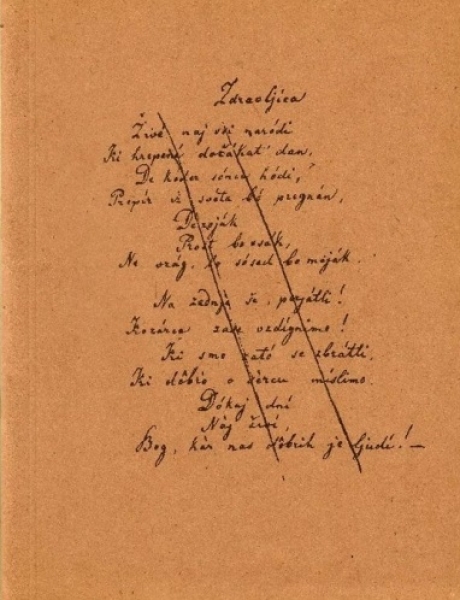 Zdravljica
Živé naj vsi naródi
Ki hrepené dočákat' dan,
De koder sónce hódi,
Prepír iz svéta bó pregnán,
De roják
Prost bo vsák,
Ne vrág, le sósed bo mėják.
Na zadnje še, prijátli!
Kozárce zase vzdignimo!
Ki smo zató se zbrátli,
Ki dôbro v sércu míslimo.
Dókaj dni
Naj živí
Bog, kár nas dôbrih je ljudí! —